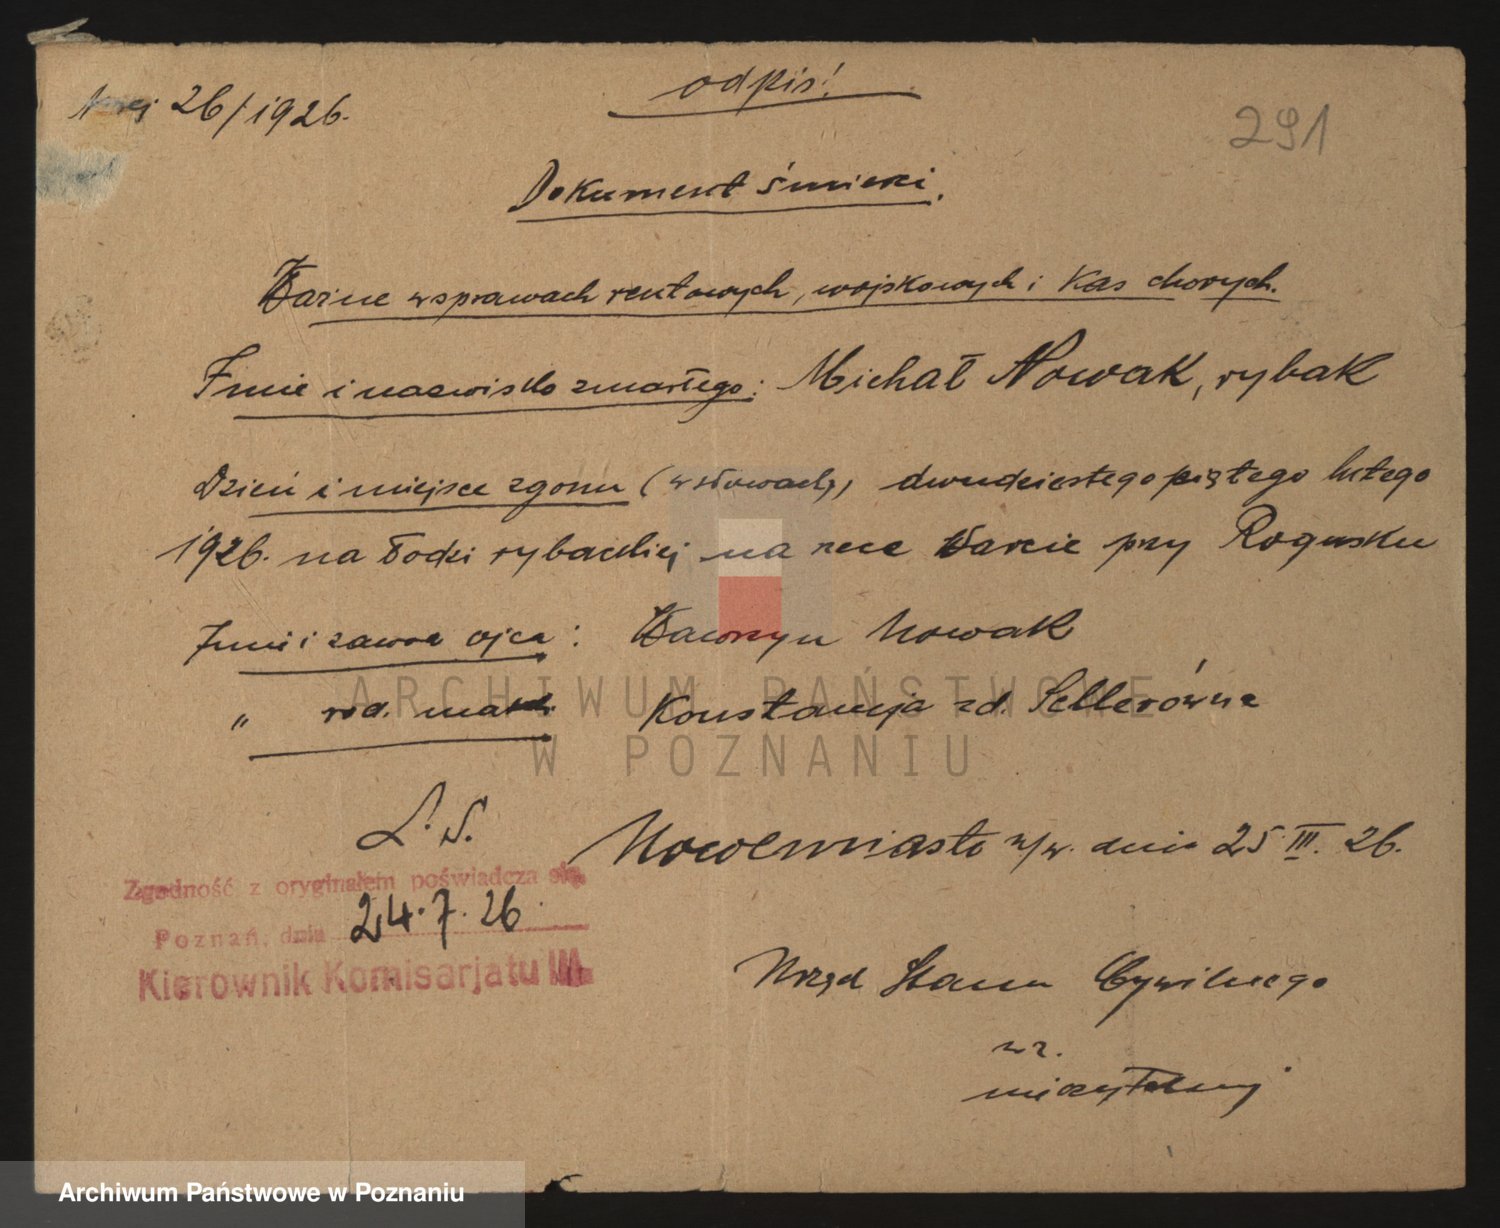 N rej 26/1926.
odpis!
291
Dokument śmierci.
Ważne w sprawach rentowych, wojskowych i Kas chorych.
Imię i nazwisko zmarłego: Michał Nowak, rybak
Dzień i miejsce zgonu (w słowach), dwudziestego piątego lutego
1926. na łodzi rybackiej na rzece Warcie przy Rogusku
Imię i zawód ojca: Wawrzyn Nowak
" rod. matki Konstancja zd. Sellerówna
L. S.
Nowemiasto n/w. dnia 25 III. 26.
Zgodność z oryginałem poświadcza się.
Poznań, dnia 24.7.26.
Kierownik Komisarjatu III
Urząd Stanu Cywilnego
wz.
nieczytelny
ARCHIWUM PAŃSTWOWE
W POZNANIU
Archiwum Państwowe w Poznaniu